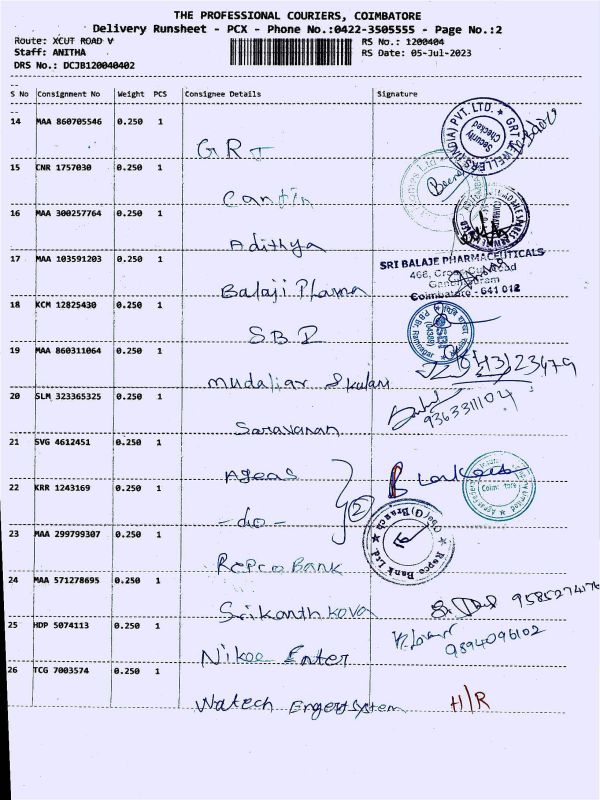 THE PROFESSIONAL COURIERS, COIMBATORE
Delivery Runsheet - PCX - Phone No.:0422-3505555 - Page No.:2
Route: XCUT ROAD V RS No.: 1200404
Staff: ANITHA RS Date: 05-Jul-2023
DRS No.: DCJB120040402
S No Consignment No Weight PCS Consignee Details Signature
14 MAA 860705546 0.250 1
GRT
GRT JEWELLERS (INDIA) PVT. LTD.
Security Checked
15 CNR 1757030 0.250 1
Cantin
16 MAA 300257764 0.250 1
Adithya
17 MAA 103591203 0.250 1
Balaji Pharma
SRI BALAJE PHARMACEUTICALS
466, Cross Cut Road
Gandhipuram
Coimbatore - 641 012
18 KCM 12825430 0.250 1
S.B.I
19 MAA 860311064 0.250 1
mudaliar
20 SLM 323365325 0.250 1
Saravanan
9363311104
21 SVG 4612451 0.250 1
Ageas
22 KRR 1243169 0.250 1
-do- 2
23 MAA 299799307 0.250 1
Repco Bank
Repco Bank Ltd.
24 MAA 571278695 0.250 1
Srikanth kova
9585274176
25 HDP 5074113 0.250 1
Nikoe Enter
9894096102
26 TCG 7003574 0.250 1
Watech System H/R